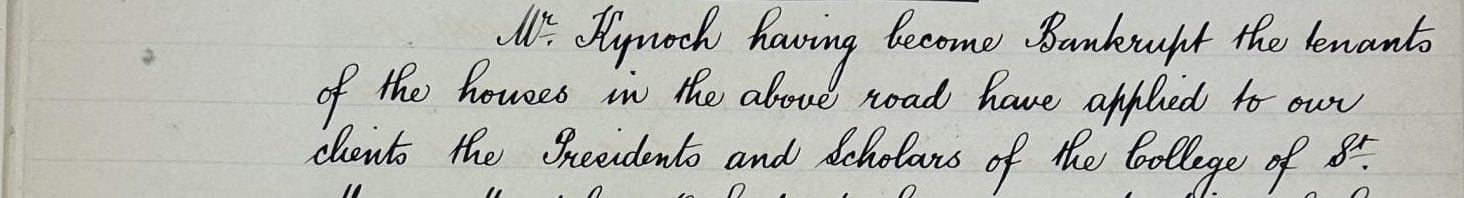 Mr. Kynoch having become Bankrupt the tenants
of the houses in the above road have applied to our
clients the Presidents and Scholars of the College of St.